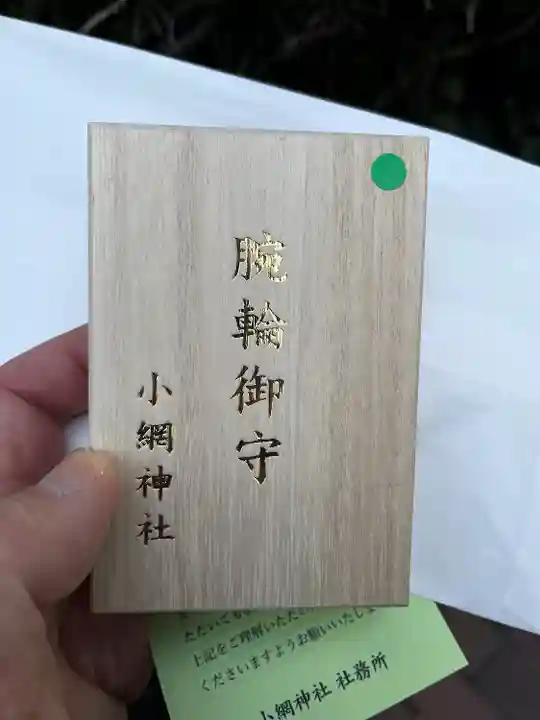 腕輪御守
小網神社
上記をご理解いただ
くださいますようお願いいたしま
小網神社 社務所